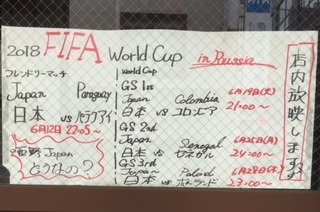 2018 FIFA World Cup in Russia
フレンドリーマッチ
Japan Paraguay
日本 vs パラグアイ
6月12日 22:05~
西野 Japan
どうなの?
World Cup
GS 1st
Japan Colombia 6月19日(火)
日本 vs コロンビア 21:00~
GS 2nd
Japan Senegal 6月25日(月)
日本 vs セネガル 24:00~
GS 3rd
Japan Poland 6月28日(木)
日本 vs ポーランド 23:00~
店内放映します